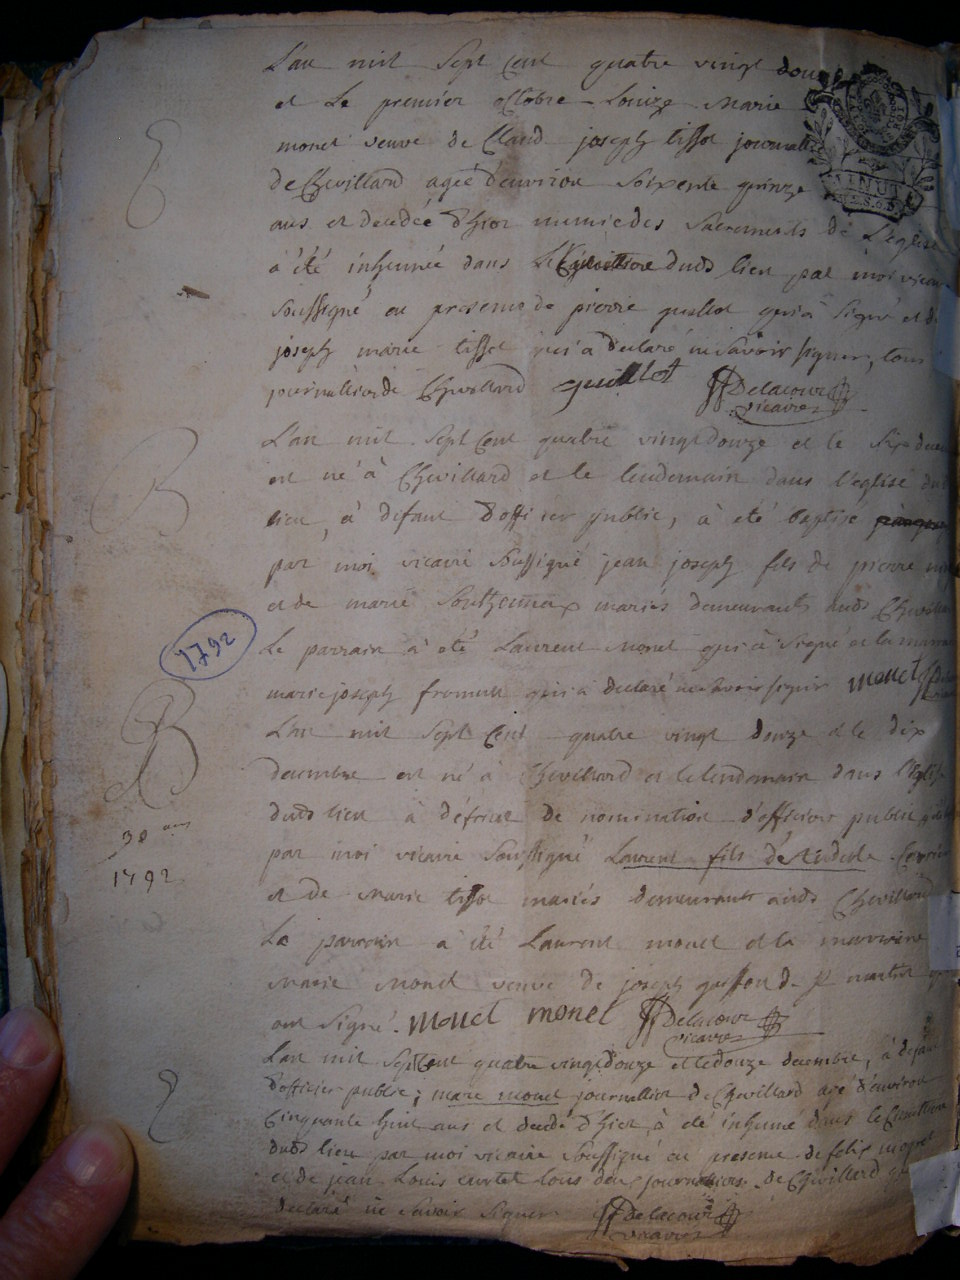 L'an mil sept cent quatre vingt douze
et le premier octobre Louize Marie
monet veuve de Claud joseph tissot journallier
de Chevillard ageé d'environ soixente quinze
ans et decedée d'hier munie des sacrements de L'eglise
à été inhumée dans Le Cimettiere dud lieu par moi vicaire
soussigné en presence de pierre guillot qui à signé et de
joseph marie tissot qui à declaré ne savoir signer, tous
journalliers de Chevillard guillot Delacour
vicaire
L'an mil sept cent quatre vingt douze et le six
est né à Chevillard et le lendemain dans l'eglise dud
lieu, à defaut d'officier public, à eté baptisé
par moi vicaire soussigné jean joseph fils de pierre
et de marie mariés demeurants aud Chevillard
Le parrain à été Laurent Monet qui à signé et la marraine
marie joseph qui à declaré ne savoir signer monet
1792
L'an mil sept cent quatre vingt douze et le dix
decembre est né à Chevillard et le lendemain dans l'Eglise
dud lieu à défaut de nomination d'officier public
par moi vicaire soussigné Laurent fils
38 ans
1792
et de Marie tissot mariés demeurants aud Chevillard
Le parrain a été Laurent monet et la marraine
Marie Monet veuve de joseph de St martin
ont signé. monet monet Delacour
vicaire
L'an mil sept cent quatre vingt douze et le douze decembre, à defaut
d'officier public; marc monet journallier de Chevillard agé d'environ
cinquante huit ans et decedé d'hier, à été inhumé dans le Cimettiere
dud lieu par moi vicaire soussigné en presence de felix
et de jean Louis curtet tous deux journalliers de Chevillard qui
declaré ne savoir signer Delacour
vicaire
MINUTE